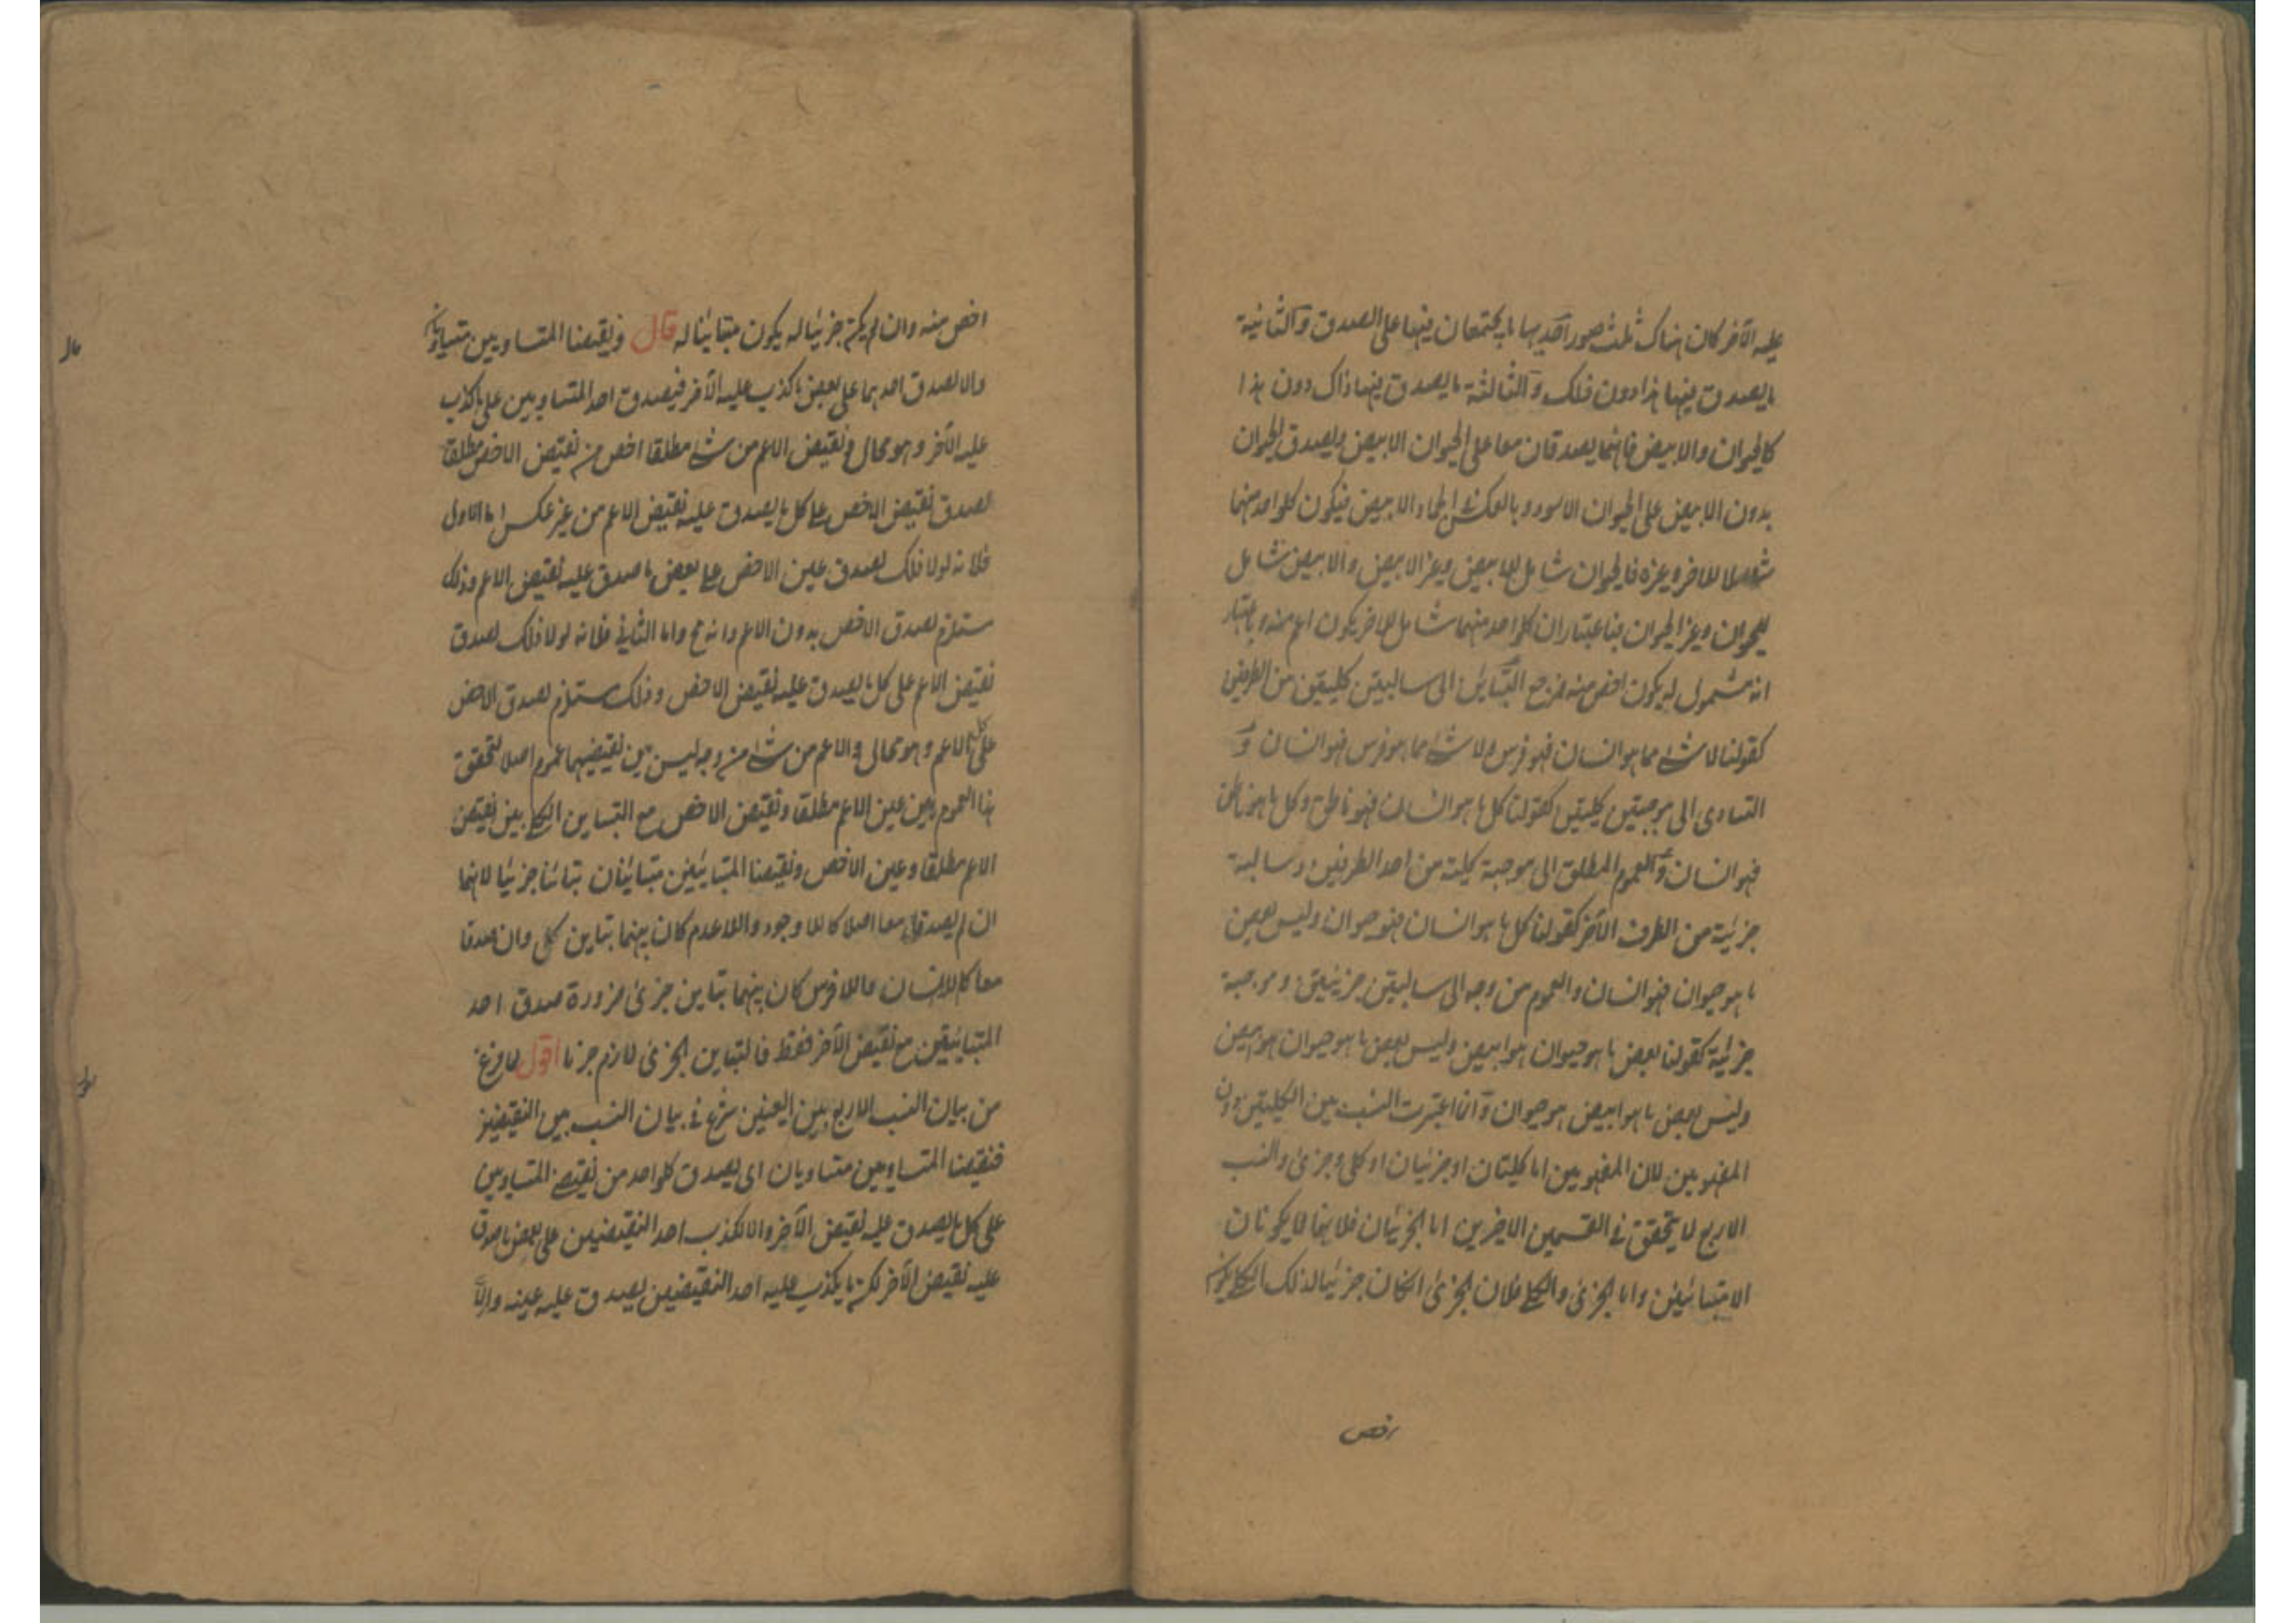 عليه الآخر كان هناك ثلث صور احديها ما يجتمعان فيها على الصدق والثانية
ما يصدق فيها هذا دون ذلك والثالثة ما يصدق فيها ذاك دون هذا
كالحيوان والابيض فانهما يصدقان معا على الحيوان الابيض ويصدق الحيوان
بدون الابيض على الحيوان الاسود وبالعكس في الجماد الابيض فيكون كلواحد منهما
شاملا للاخر وغيره فالحيوان شامل للابيض وغير الابيض والابيض شامل
للحيوان وغير الحيوان فباعتبار ان كلواحد منهما شامل للاخر يكون اعم منه وباعتبار
انه مشمول له يكون اخص منه فمرجع التباين الى سالبتين كليتين من الطرفين
كقولنا لا شئ مما هو انسان فهو فرس ولا شئ مما هو فرس فهو انسان و
التساوى الى موجبتين كليتين كقولنا كل ما هو انسان فهو ناطق وكل ما هو ناطق
فهو انسان والعموم المطلق الى موجبة كلية من احد الطرفين وسالبة
جزئية من الطرف الآخر كقولنا كل ما هو انسان فهو حيوان وليس بعض
ما هو حيوان فهو انسان والعموم من وجه الى سالبتين جزئيتين وموجبة
جزئية كقولنا بعض ما هو حيوان هو ابيض وليس بعض ما هو حيوان هو ابيض
وليس بعض ما هو ابيض هو حيوان وانما اعتبرت النسب بين الكليتين دون
المفهومين لان المفهومين اما كليتان او جزئيان او كلى وجزئى والنسب
الاربع لا يتحقق فى القسمين الاخيرين اما الجزئيان فلانهما لا يكونان
الا متبائنين واما الجزئى والكلى فلان الجزئى انكان جزئيا لذلك الكلى يكون
اخص
اخص منه وان لم يكن جزئيا له يكون متبائنا له قال ونقيضا المتساويين متساويان
والا لصدق احدهما على بعض ما كذب عليه الآخر فيصدق احد المتساويين على ما كذب
عليه الآخر وهو محال ونقيض الاعم من شئ مطلقا اخص من نقيض الاخص مطلقا
لصدق نقيض الاخص على كل ما يصدق عليه نقيض الاعم من غير عكس اما الاول
فلانه لولا ذلك لصدق عين الاخص على بعض ما صدق عليه نقيض الاعم وذلك
مستلزم لصدق الاخص بدون الاعم وانه مح واما الثانى فلانه لولا ذلك لصدق
نقيض الاعم على كل ما يصدق عليه نقيض الاخص وذلك مستلزم لصدق الاخص
على كل الاعم وهو محال والاعم من شئ من وجه ليس بين نقيضيهما عموم اصلا لتحقق
هذا العموم بين عين الاعم مطلقا ونقيض الاخص مع التباين الكلى بين نقيض
الاعم مطلقا وعين الاخص ونقيضا المتبائنين متبائنان تبائنا جزئيا لانهما
ان لم يصدقا معا اصلا كاللا وجود واللا عدم كان بينهما تباين كلى وان صدقا
معا كاللا انسان واللا فرس كان بينهما تباين جزئى ضرورة صدق احد
المتبائنين مع نقيض الآخر فقط فالتباين الجزئى لازم جزما اقول لما فرغ
من بيان النسب الاربع بين العينين شرع فى بيان النسب بين النقيضين
فنقيضا المتساويين متساويان اى يصدق كلواحد من نقيضى المتساويين
على كل ما يصدق عليه نقيض الآخر والا لكذب احد النقيضين على بعض ما صدق
عليه نقيض الآخر لكن ما يكذب عليه احد النقيضين يصدق عليه عينه والا